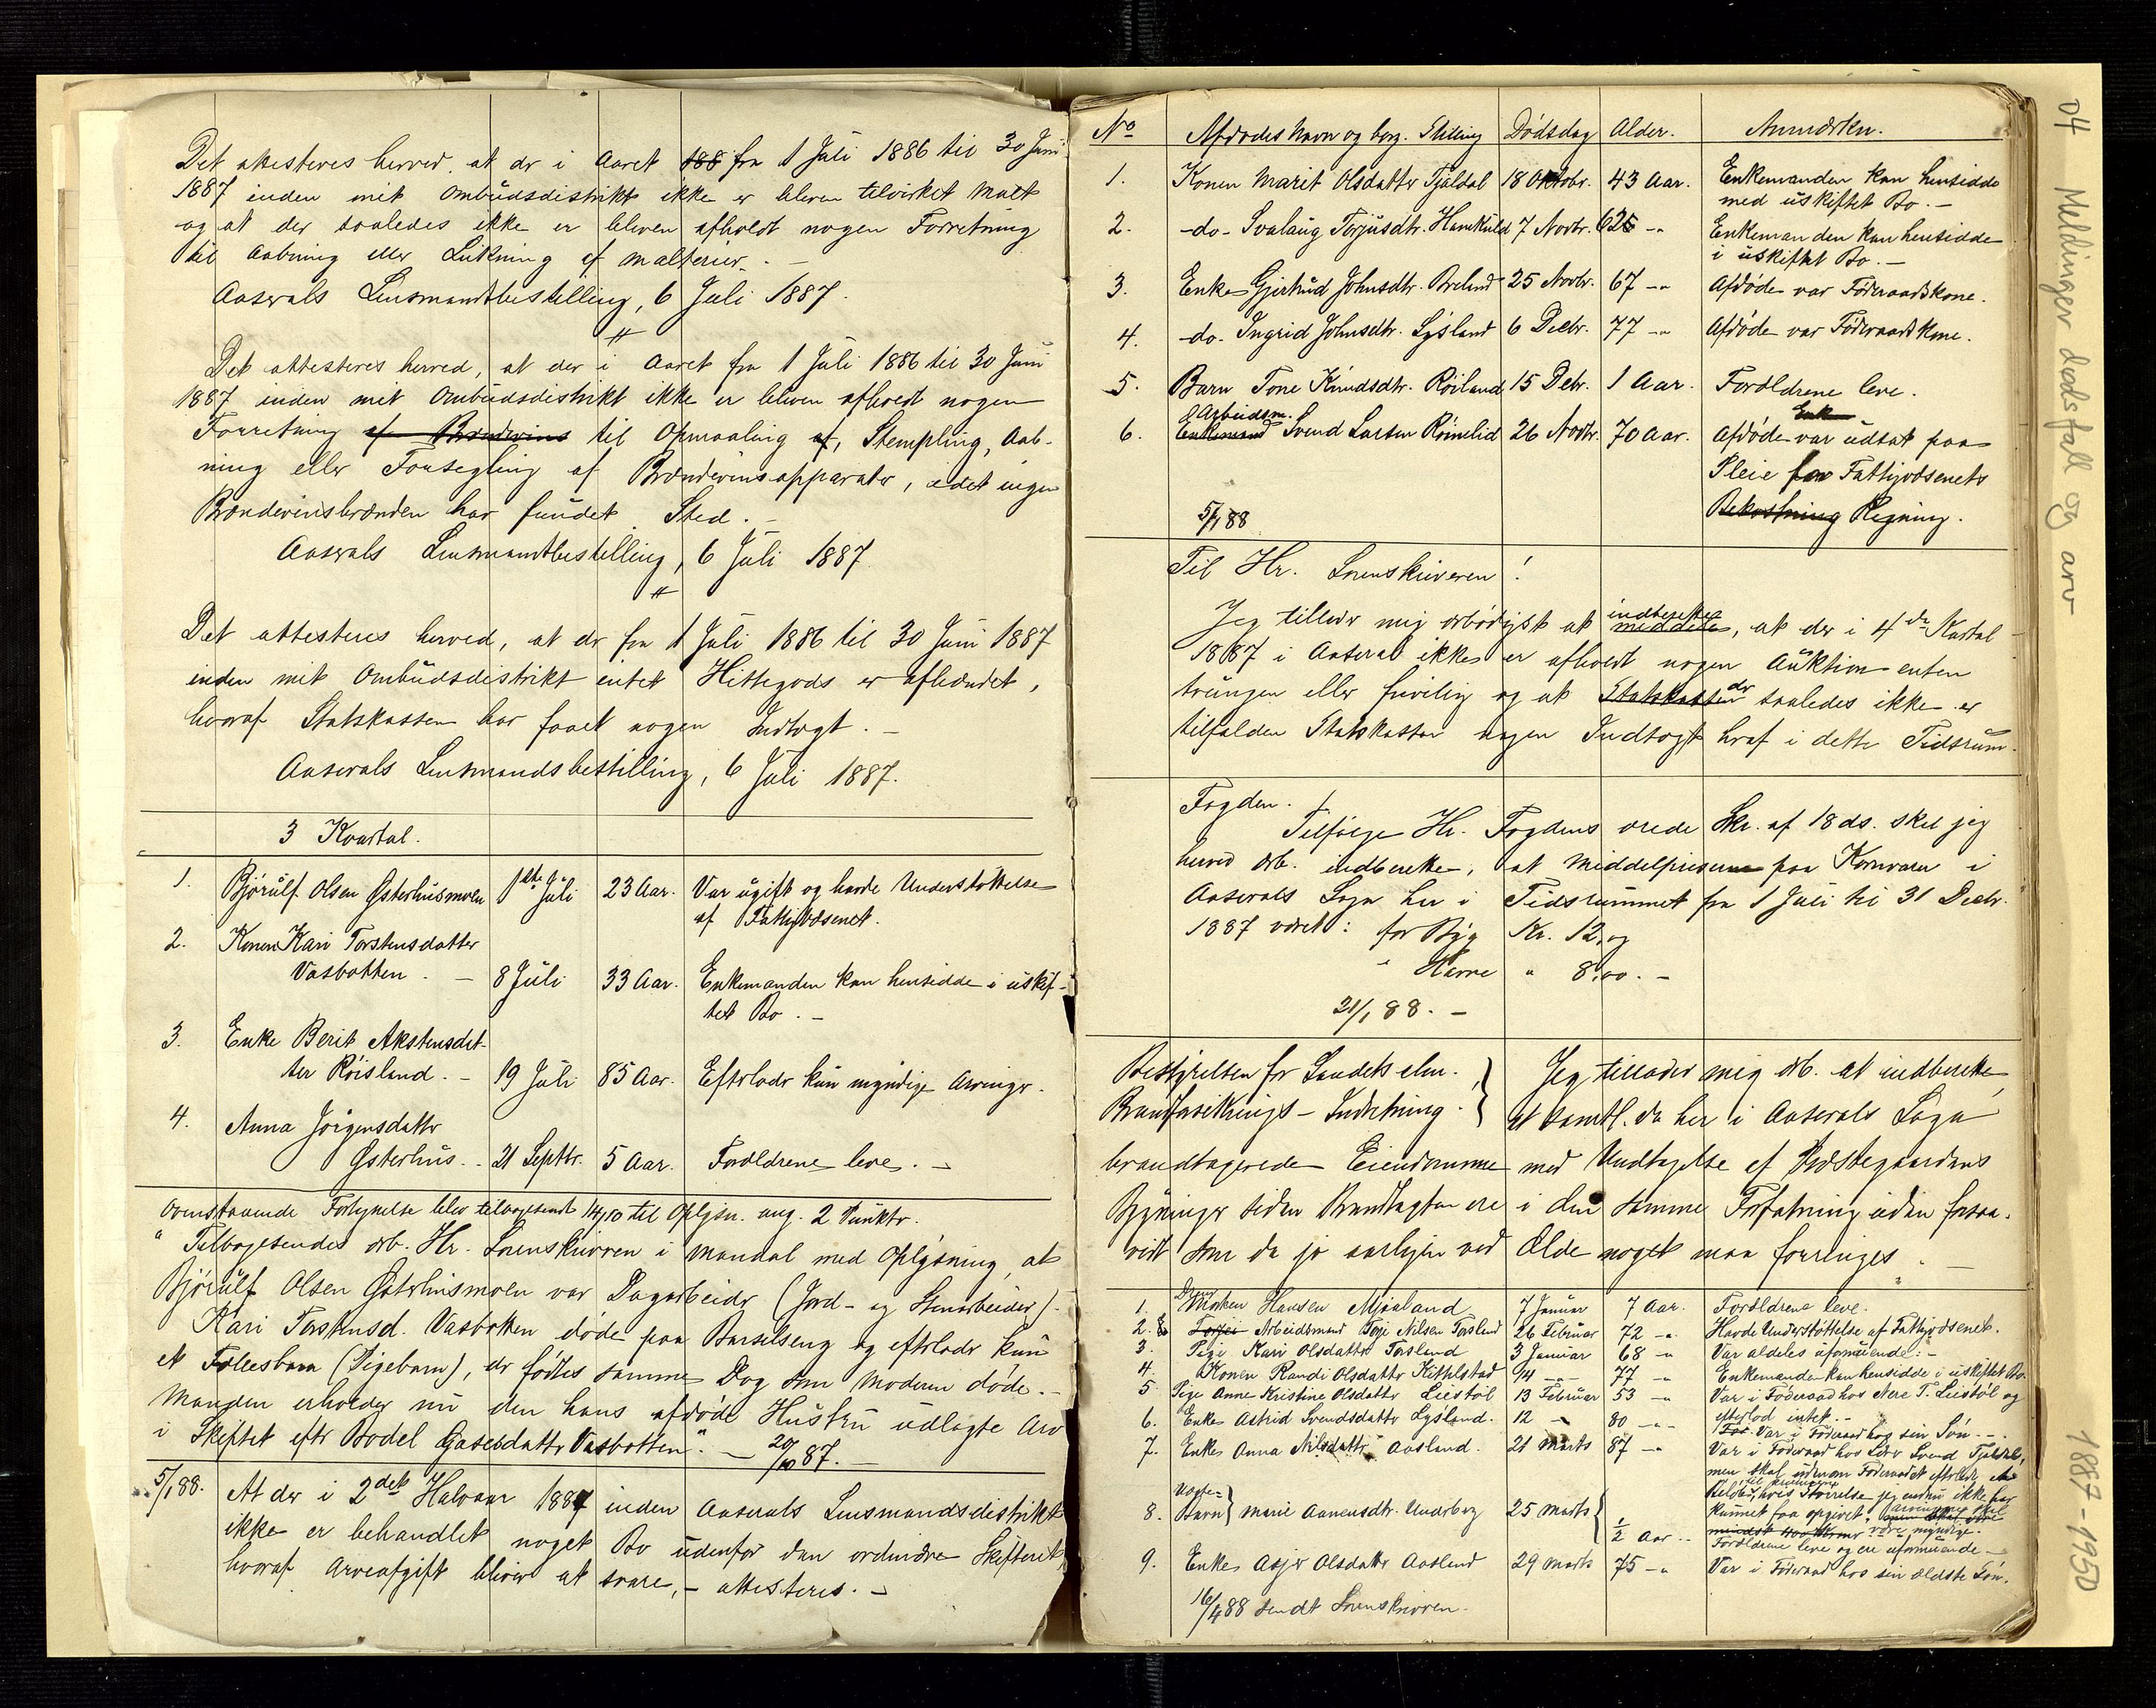 Det attesteres herved, at der i Aaret 188 fra 1 Juli 1886 til 30 Juni
1887 inden mit Ombudsdistrikt ikke er bleven tilvirket Malt
og at der saaledes ikke er bleven afholdt nogen Forretning
til Aabning eller Lukning af Malterier. -
Aaserals Lensmandsbestilling, 6 Juli 1887.
Det attesteres herved, at der i Aaret fra 1 Juli 1886 til 30 Juni
1887 inden mit Ombudsdistrikt ikke er bleven afholdt nogen
Forretning af Brændevins til Opmaaling af, Stempling, Aab-
ning eller Forsegling af Brændevinsapparater, idet ingen
Brændevinsbrænden har fundet Sted. -
Aaserals Lensmandsbestilling, 6 Juli 1887.
Det attesteres herved, at der fra 1 Juli 1886 til 30 Juni 1887
inden mit Ombudsdistrikt intet Hittegods er afhændet,
hvoraf Statskassen har faaet nogen Indtægt. -
Aaserals Lensmandsbestilling, 6 Juli 1887.
3 Kvartal.
1. Bjørulf Olsen Østerhusmoen 1ste Juli 23 Aar. Var ugift og havde Understøttelse
af Fattigvæsenet.
2. Konen Kari Torstensdatter
Vasbotten. - 8 Juli 33 Aar. Enkemanden kan hensidde i uskif-
tet Bo. -
3. Enke Berit Akstensdat-
ter Røisland. - 19 Juli 85 Aar. Efterlader kun myndige Arvinger.
4. Anna Jørgensdatter
Østerhus. - 21 Septbr. 5 Aar. Forældrene leve. -
Ovenstaaende Fortegnelse blev tilbagesendt 14/10 til Oplysn. ang. 2 Punkter.
" Tilbagesendes ærb. Hr. Sorenskriveren i Mandal med Oplysning, at
Bjørulf Olsen Østerhusmoen var Dagarbeider (Jord- og Stenarbeider).
Kari Torstensd. Vasbotten døde paa Barselseng og efterlader kun
et Fællesbarn (Pigebarn), der fødtes samme Dag som Moderen døde. -
Manden erholder nu den hans afdøde Hustru udlagte Arv
i Skiftet efter Bodel Gasesdatter Vasbotten". - 20/10 87. -
5/1 88. At der i 2det Halvaar 1887 inden Aaserals Lensmandsdistrikt
ikke er behandlet noget Bo udenfor den ordinære Skifteret,
hvoraf Arveafgift bliver at svare, - attesteres. -
No Afdødes Navn og borg. Stilling Dødsdag Alder. Anmærkn.
1. Konen Marit Olsdatter Tjaldal 18 Oktobr. 43 Aar. Enkemanden kan hensidde
med uskiftet Bo. -
2. -do- Svalaug Torjusdtr. Hamkuld 7 Novbr. 62 -"- Enkemanden kan hensidde
i uskiftet Bo. -
3. Enke Gjertrud Johnsdtr. Breland 25 Novbr. 67 -"- Afdøde var Føderaadskone.
4. -do- Ingrid Johnsdtr. Lysland 6 Decbr. 77 -"- Afdøde var Føderaadskone.
5. Barn Tone Knudsdtr. Røiland 15 Debr. 1 Aar. Forældrene leve.
Arbeidsm. Enk
6. Enkemand Svend Larsen Røinelid 26 Novbr. 70 Aar. Afdøde var udsat paa
Pleie for Fattigvæsenets
5/1 88 Bekostning Regning.
Til Hr. Sorenskriveren!
indberette
Jeg tillader mig ærbødigst at meddele, at der i 4de Kvartal
1887 i Aaseral ikke er afholdt nogen Auktion enten
tvungen eller frivilig og at Statskassen der saaledes ikke er
tilfalden Statskassen nogen Indtægt heraf i dette Tidsrum.
Fogden.
Tilfølge Hr. Fogdens ærede Skr. af 18 ds. skal jeg
herved ærb. indberette, at Middelpriserne paa Kornvarer i
Aaserals Sogn her i Tidsrummet fra 1 Juli til 31 Decbr.
1887 været: for Byg Kr. 12, og
" Havre " 8,00. -
21/1 88. -
Bestyrelsen for Landets alm.
Brandforsikrings-Indretning.
Jeg tillader mig ærb. at indberette,
at samtl. de her i Aaserals Sogn
brandtagerede Eiendomme med Undtagelse af Præstegaardens
Bygninger siden Brandtagten ere i den samme Forfatning uden forsaa-
vidt som de jo aarligen ved Ælde noget maa forringes. -
1. Morten Hansen Mjaaland 7 Januar 7 Aar. Forældrene leve.
2. Torjei Arbeidsmand Terje Nilsen Torsland 26 Februar 72 -"- Havde Understøttelse af Fattigvæsenet.
3. Pige Kari Olsdatter Torsland 3 Januar 68 -"- Var aldeles uformuende. -
4. Konen Randi Olsdatter Kittelstad 9/4 - 77 -"- Enkemanden kan hensidde i uskiftet Bo.
5. Pige Anne Kristine Olsdatter Liestøl 13 Februar 53 -"- Var i Føderaad hos Nere T. Liestøl og
efterlod intet. -
6. Enke Astrid Svendsdatter Lysland. 12 -"- 80 -"- Var i Føderaad hos sin Søn. -
7. Enke Anna Nilsdatter Aasland. 21 Marts 87 -"- Var i Føderaad hos Svend Tjaldal,
men skal udenom Føderaadet efterlade
hvis Størrelse jeg endnu ikke har
kunnet faa opgivet.
være myndige.
8. Barn Marie Aanensdtr. Underberg 25 Marts 1/2 Aar - Forældrene leve og ere uformuende -
9. Enke Asjer Olsdatter Aasland 29 Marts 75 -"- Var i Føderaad hos sin ældste Søn.
16/4 88 sendt Sorenskriveren.
04 Meldinger dødsfall og arv 1887-1950